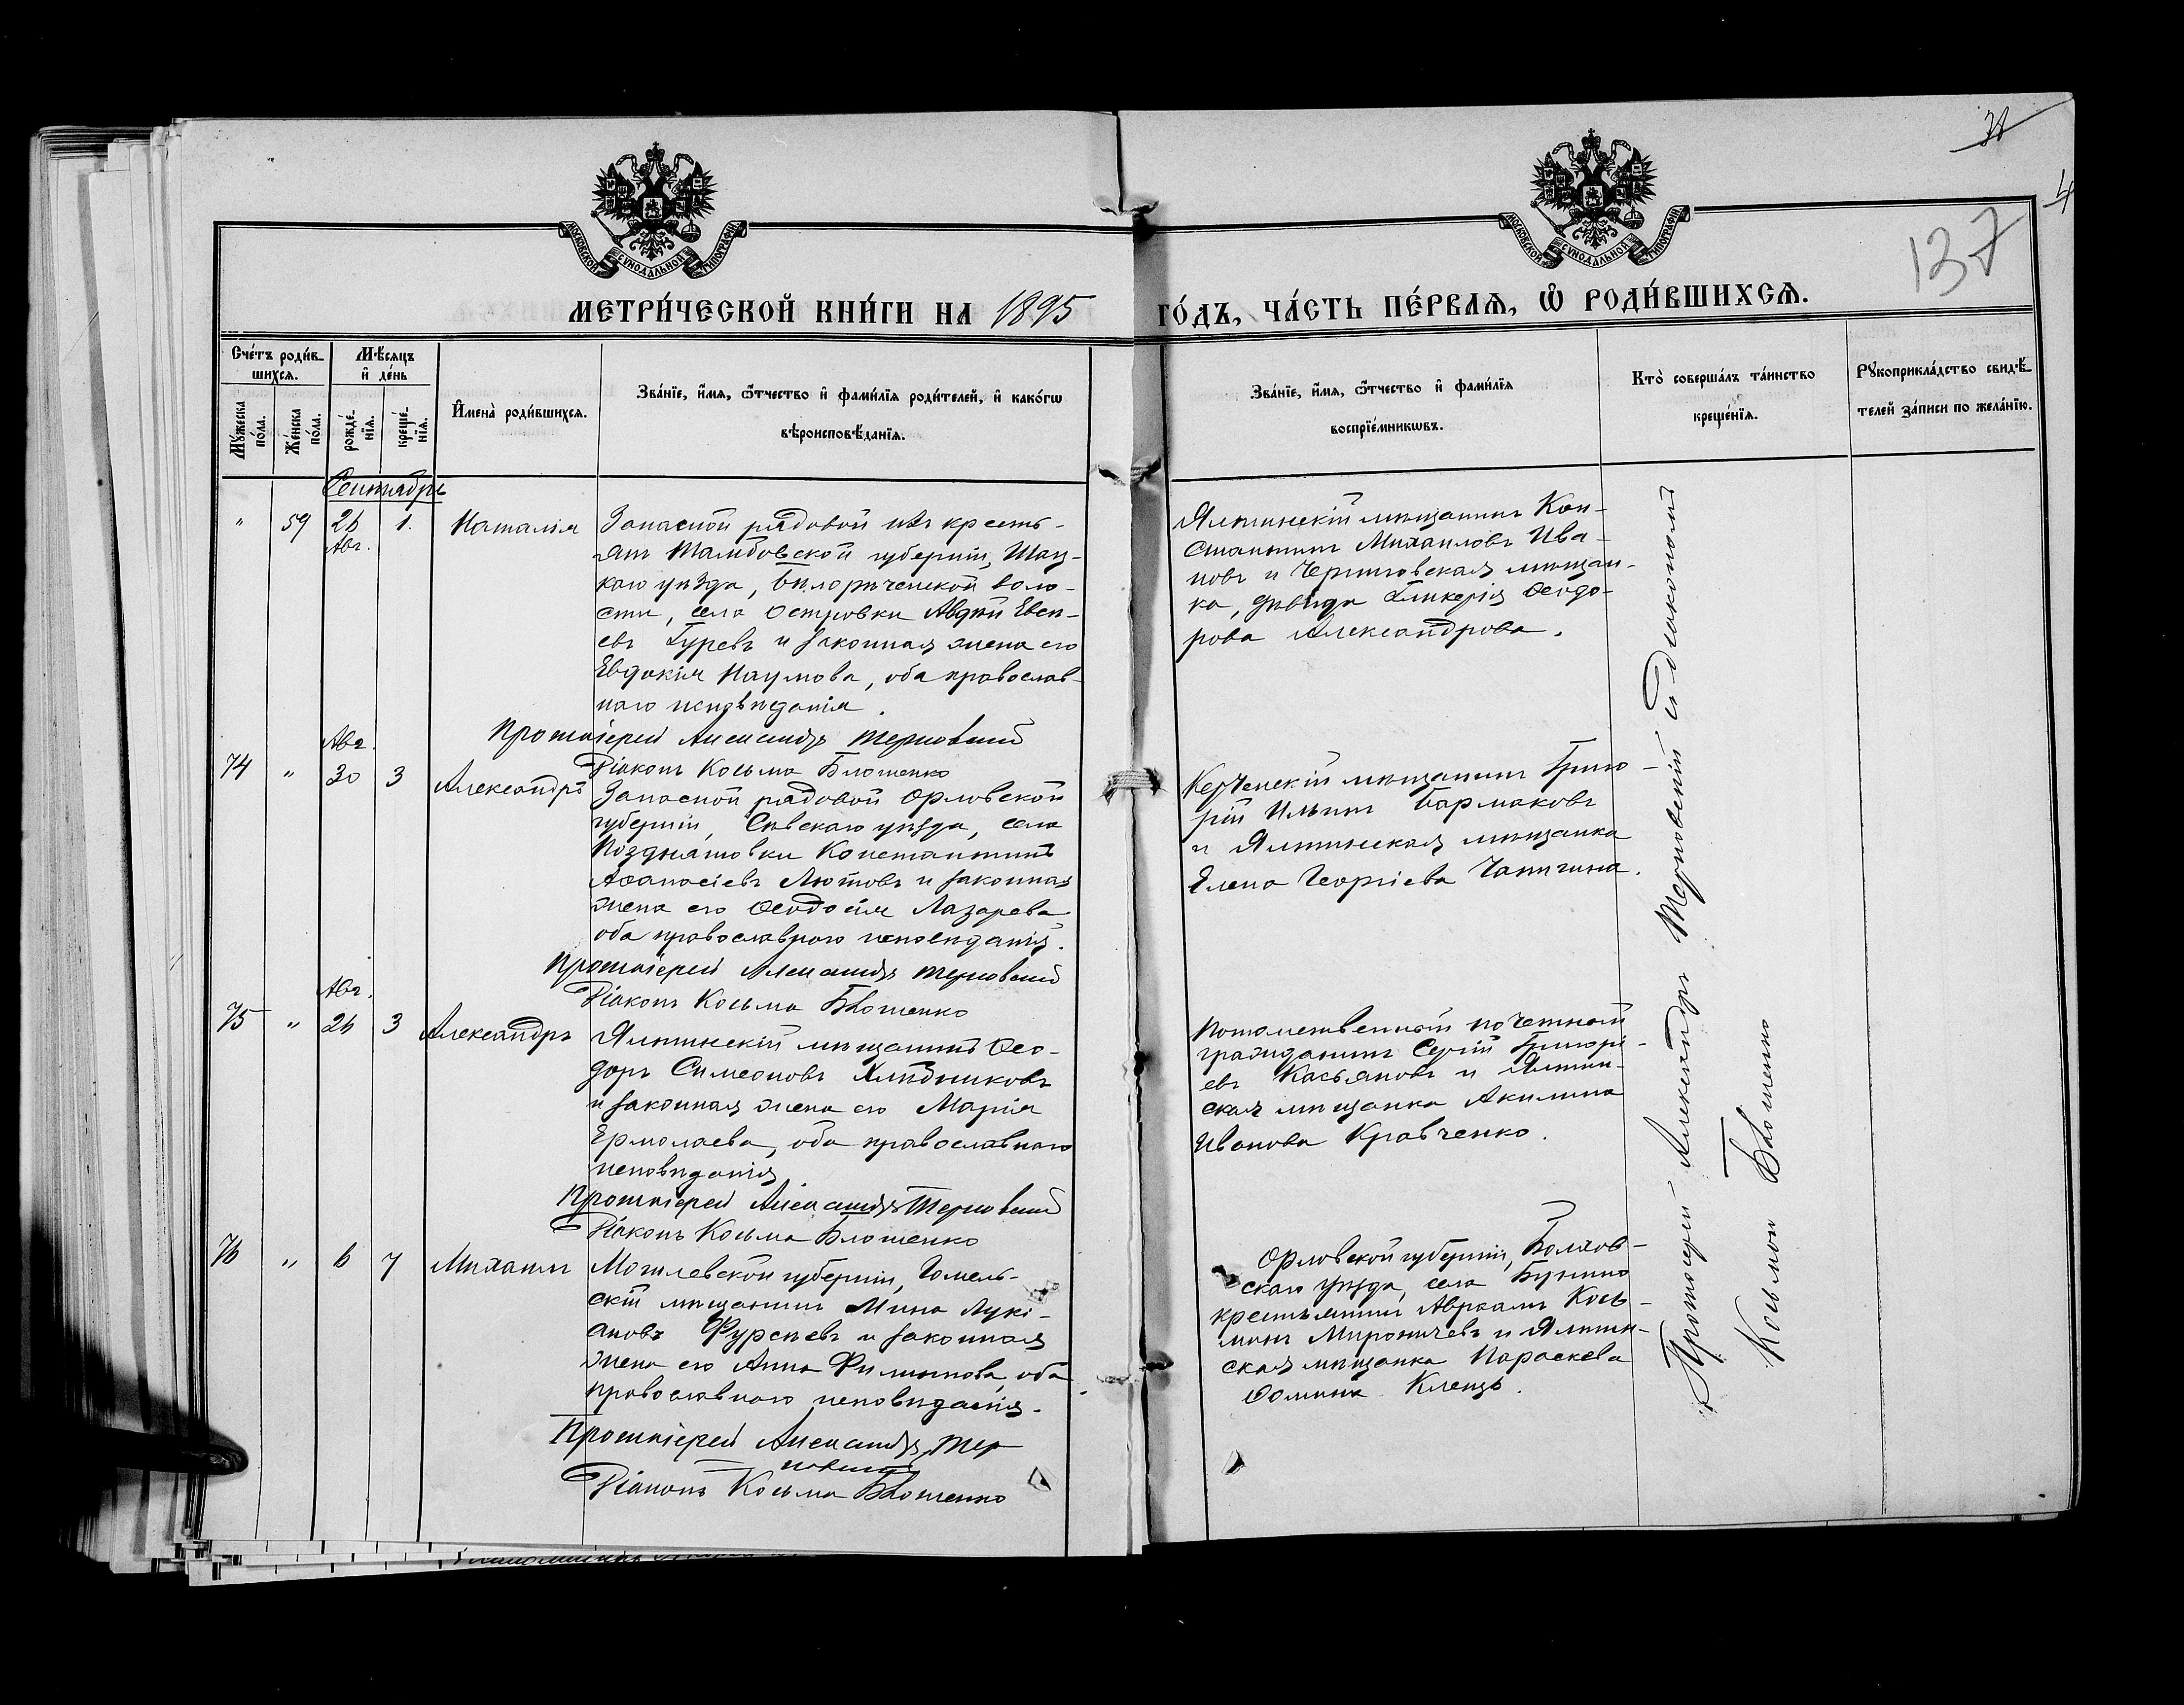 31
4
137
МОСКОВСКОЙ СѴНОДАЛЬНОЙ ТИПОГРАФІИ
МОСКОВСКОЙ СѴНОДАЛЬНОЙ ТИПОГРАФІИ
МЕТРИ́ЧЕСКОЙ КНИ́ГИ НА 1895 ГО́ДЪ, ЧА́СТЬ ПЕ́РВАѦ, Ѡ҆ РОДИ́ВШИХСѦ.
Сче́тъ роди́в-
шихсѧ.
Мѣ́сяцъ
и҆ де́нь
Мꙋ́жеска
по́ла.
Же́нска
по́ла.
рожде́-
нїѧ.
креще́-
нїѧ.
И҆мена̀ роди́вшихсѧ.
Зва́нїе, и҆́мѧ, ѻ҆́тчество и҆ фами́лїѧ роди́телей, и҆ како́гѡ
вѣроисповѣ́данїѧ.
Зва́нїе, и҆́мѧ, ѻ҆́тчество и҆ фами́лїѧ
воспрїе́мникѡвъ.
Кто̀ соверша́лъ та́инство
креще́нїѧ.
Рꙋкоприкла́дство свидѣ́-
телей за́писи по жела́нїю.
Сентябрь
" 59 26 1. Наталія
Авг.
Запасной рядовой изъ кресть-
янъ Тамбовской губерніи, Шац-
каго уѣзда, Бѣлорѣченской воло-
сти, села Островки Авдій Евсе-
евъ Гуревъ и законная жена его
Евдокія Наумова, оба православ-
наго исповѣданія.
Протоіерей Александръ Терновский
Діаконъ Косьма Блошенко
Ялтинскій мѣщанинъ Кон-
стантинъ Михаиловъ Ива-
новъ и Черниговская мѣщан-
ка, дѣвица Гликерія Ѳеодо-
рова Александрова.
Авг.
74 " 30 3 Александръ
Запасной рядовой Орловской
губерніи, Сѣвскаго уѣзда, села
Позднятовки Константинъ
Аѳанасіевъ Лютовъ и законная
жена его Ѳеодосія Лазарева,
оба православнаго исповѣданія.
Протоіерей Александръ Терновский
Діаконъ Косьма Блошенко
Керченскій мѣщанинъ Григо-
рій Ильинъ Бармаковъ
и Ялтинская мѣщанка
Елена Георгіева Чапигина.
Авг.
75 " 26 3 Александръ
Ялтинскій мѣщанинъ Ѳео-
доръ Симеоновъ Хлѣбниковъ
и законная жена его Марія
Ермолаева, оба православнаго
исповѣданія
Протоіерей Александръ Терновский
Діаконъ Косьма Блошенко
Потомственный почетный
гражданинъ Сергій Григорі-
евъ Касьяновъ и Ялтин-
ская мѣщанка Акилина
Иванова Кравченко.
76 " 6 7 Михаилъ
Могилевской губерніи, Гомель-
скій мѣщанинъ Мина Лукі-
ановъ Фурсаевъ и законная
жена его Анна Филиппова, оба
православнаго исповѣданія.
Протоіерей Александръ Тер-
новский
Діаконъ Косьма Блошенко
Орловской губерніи, Болхов-
скаго уѣзда, села Бунино
крестьянинъ Авраамъ Кось-
минъ Мироничевъ и Ялтин-
ская мѣщанка Параскева
Ѳомина Клещъ.
Протоіерей Александръ Терновскій съ діакономъ
Косьмою Блошенко